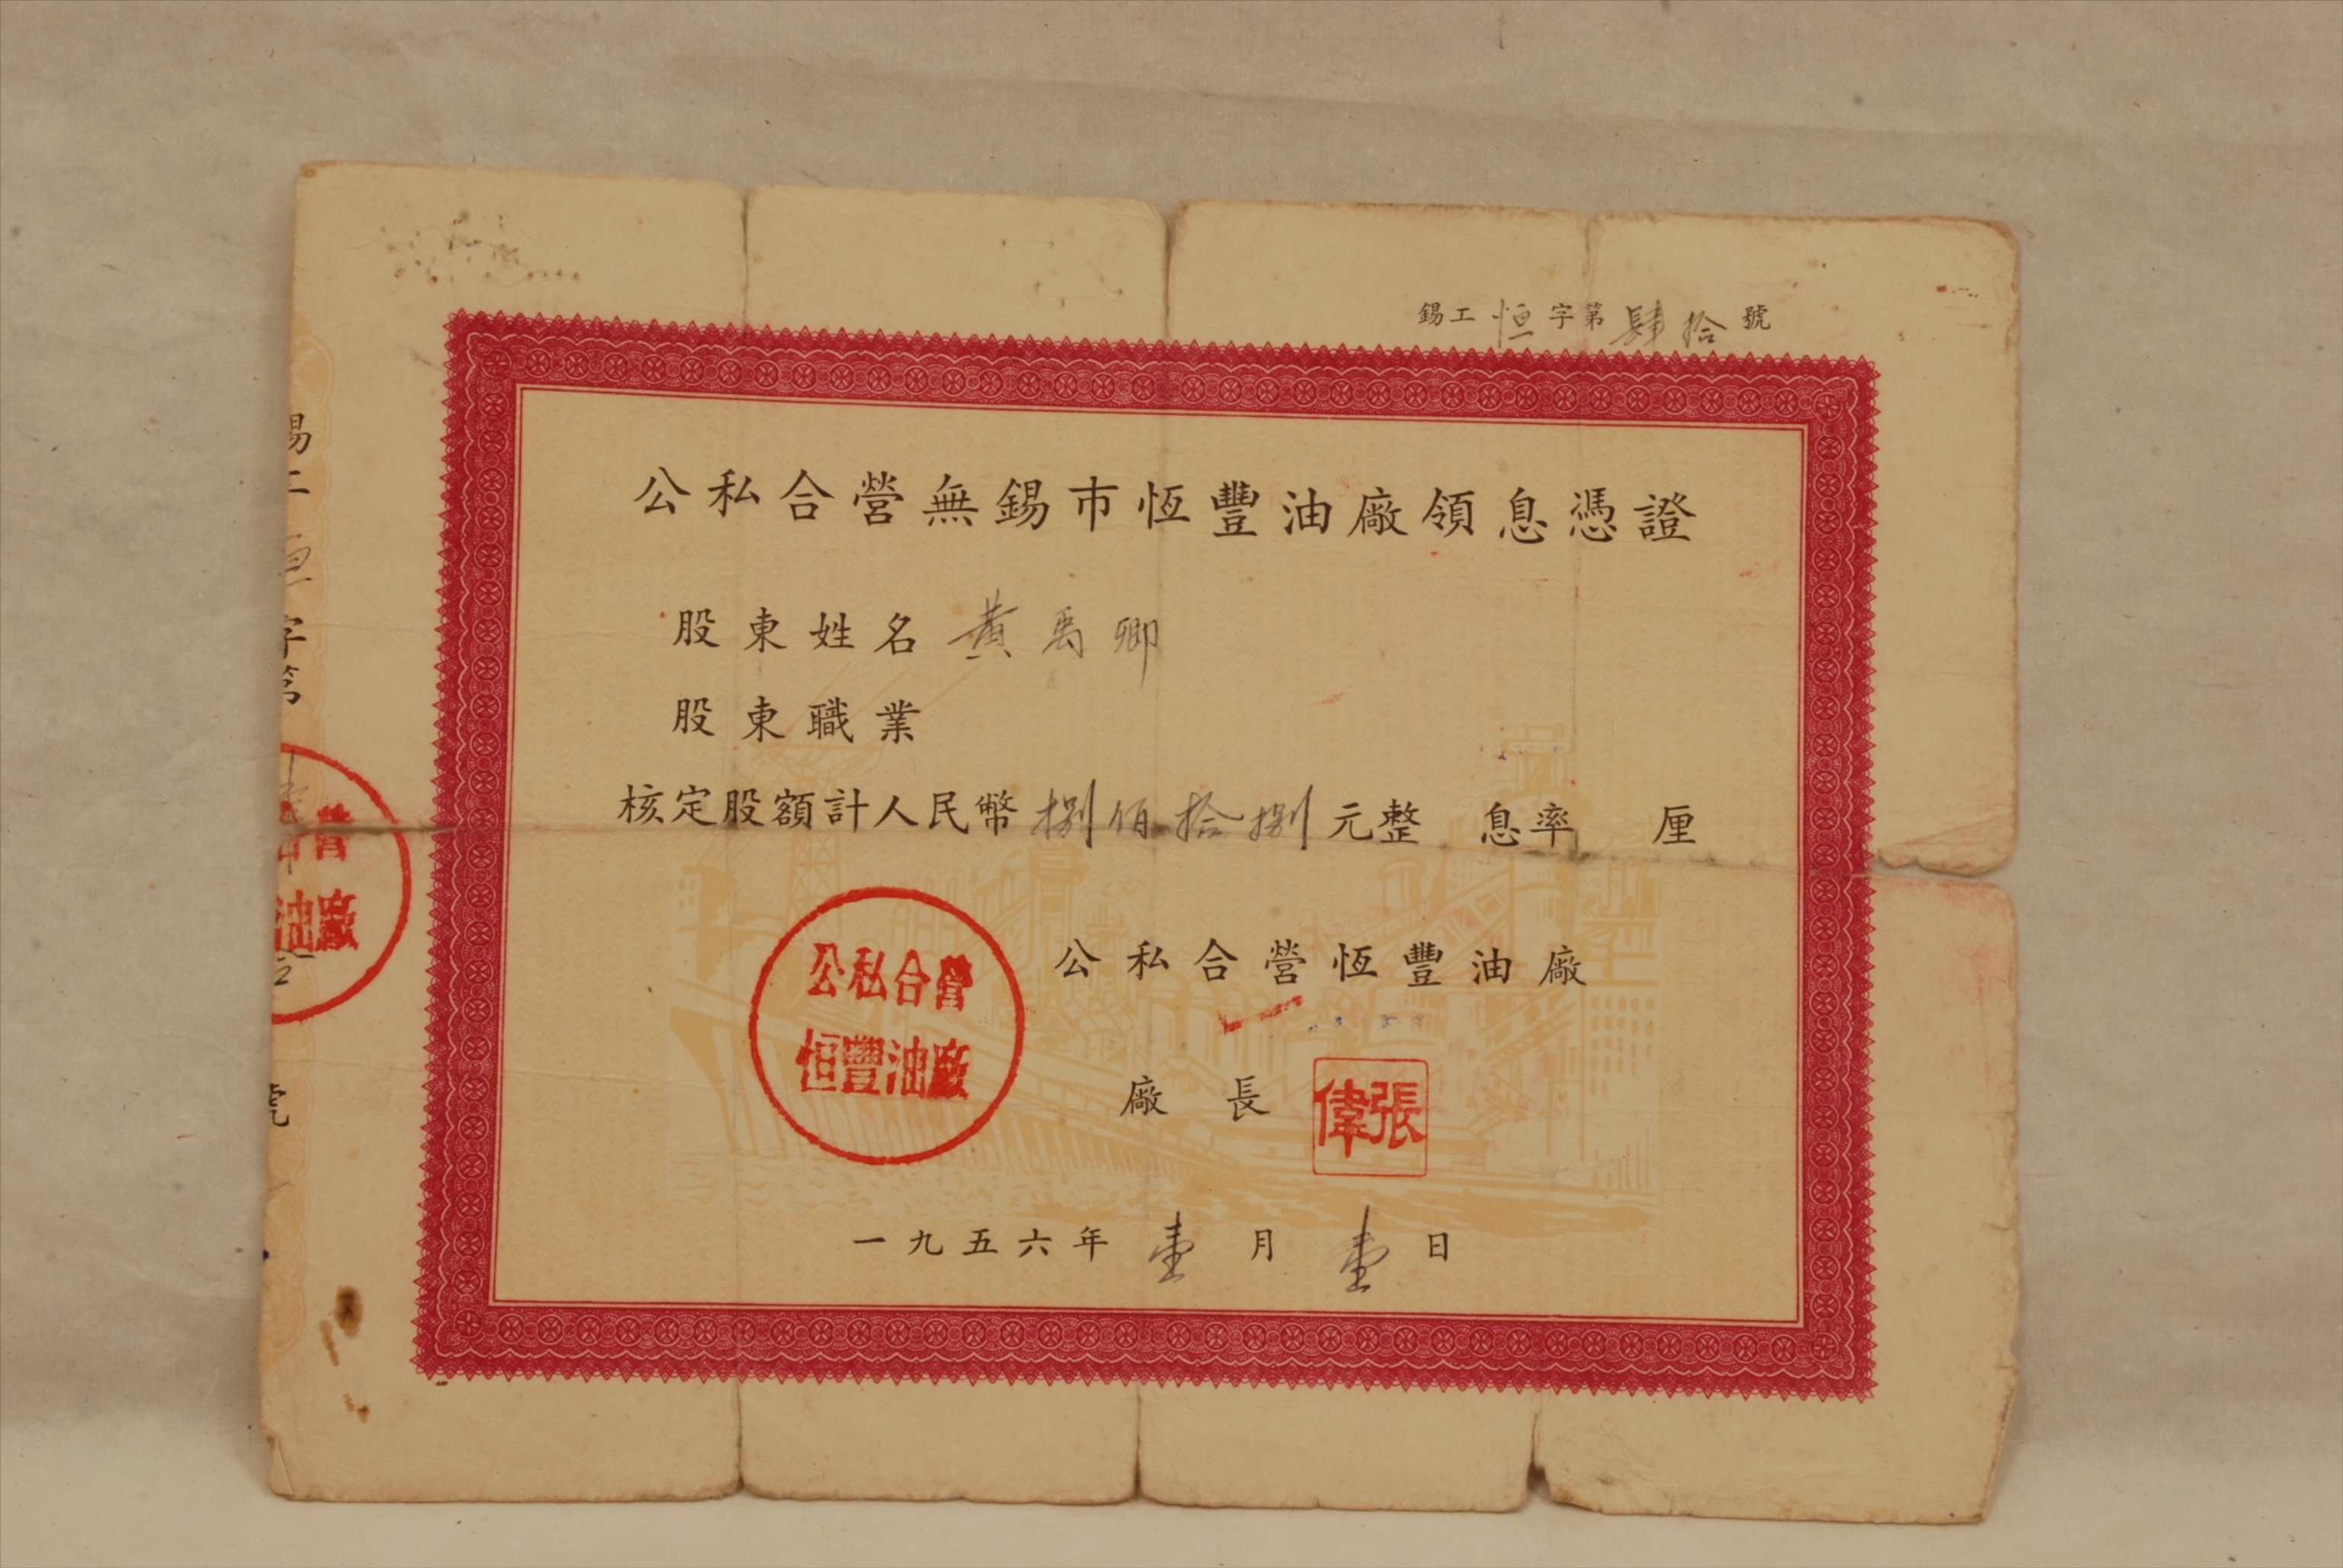 錫工恒字第肆拾號
公私合營無錫市恆豐油廠領息憑證
股東姓名 黃禹卿
股東職業
核定股額計人民幣捌佰拾捌元整 息率 厘
公私合營恆豐油廠
公私合營
恒豐油廠
廠長
張偉
一九五六年壹月壹日
錫工恒字第
號
營
油廠